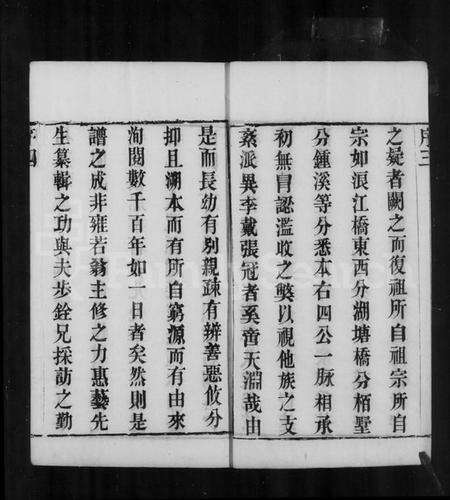 序三
之疑者闕之而復祖所自祖宗所自
宗如浪江橋東西分湖塘橋分栢墅
分鍾溪等分悉本右四公一脉相承
初無冒認濫收之弊以視他族之支
紊派異李戴張冠者奚啻天淵哉由
是而長幼有别親疎有辨善惡攸分
抑且溯本而有所自窮源而有由來
洵閱數千百年如一日者矣然則是
譜之成非雍若翁主修之力惠藝先
生纂輯之功與夫步銓兄採訪之勤
序四